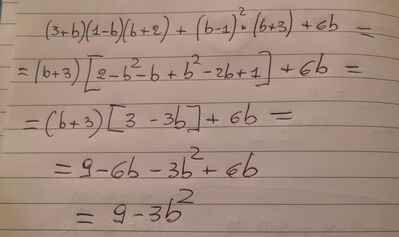 (3+b)(1-b)(b+2) + (b-1)²·(b+3) + 6b =
= (b+3) [2-b²-b+b²-2b+1] + 6b =
= (b+3) [3 - 3b] + 6b =
= 9-6b-3b²+6b
= 9-3b²